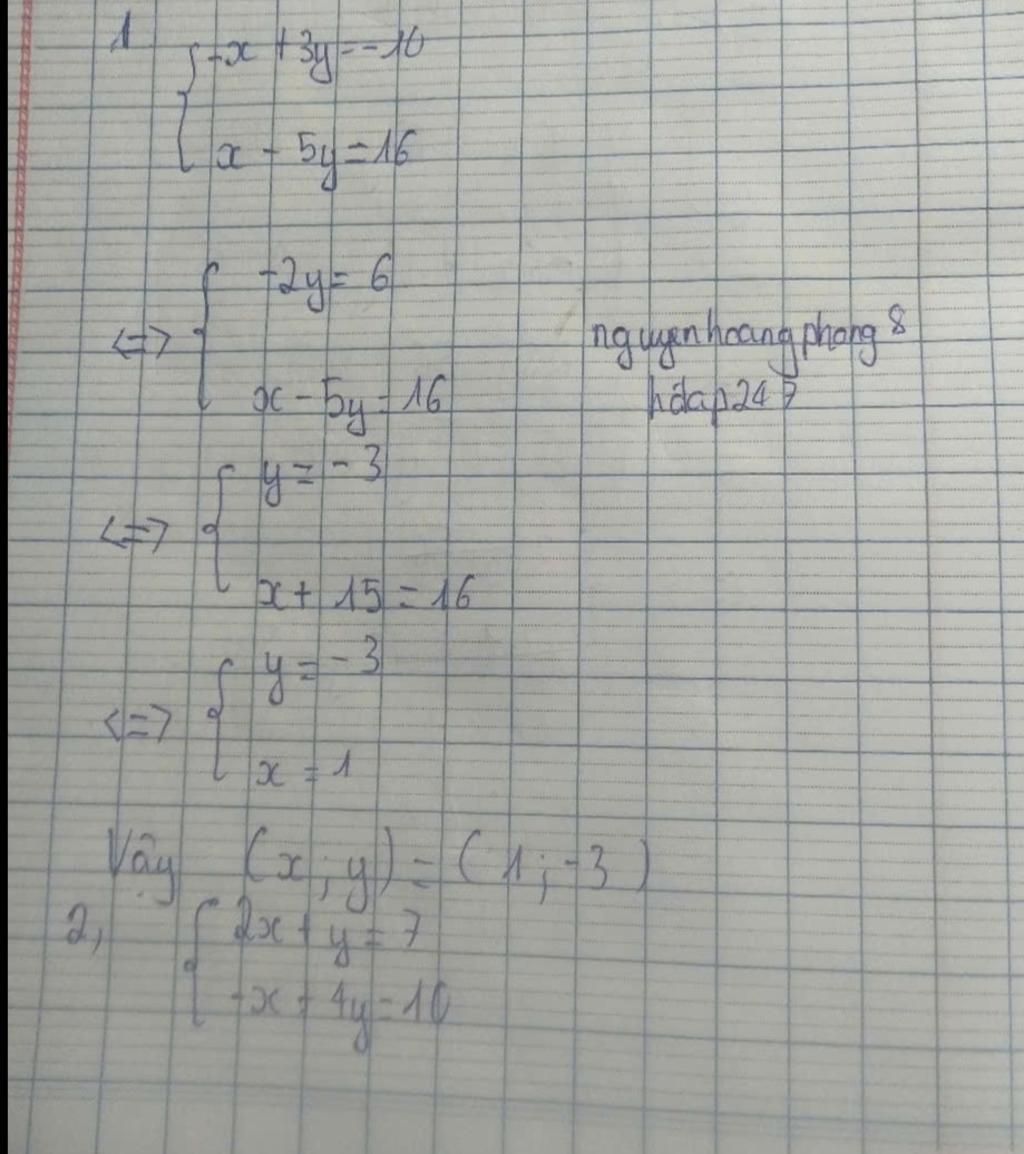 1
-x + 3y = -10
x - 5y = 16
-2y = 6
<=>
x - 5y = 16
nguyenhoangphong8
hdap247
y = -3
<=>
x + 15 = 16
y = -3
<=>
x = 1
Vậy (x; y) = (1; -3)
2, 2x + y = 7
-x + 4y = 10